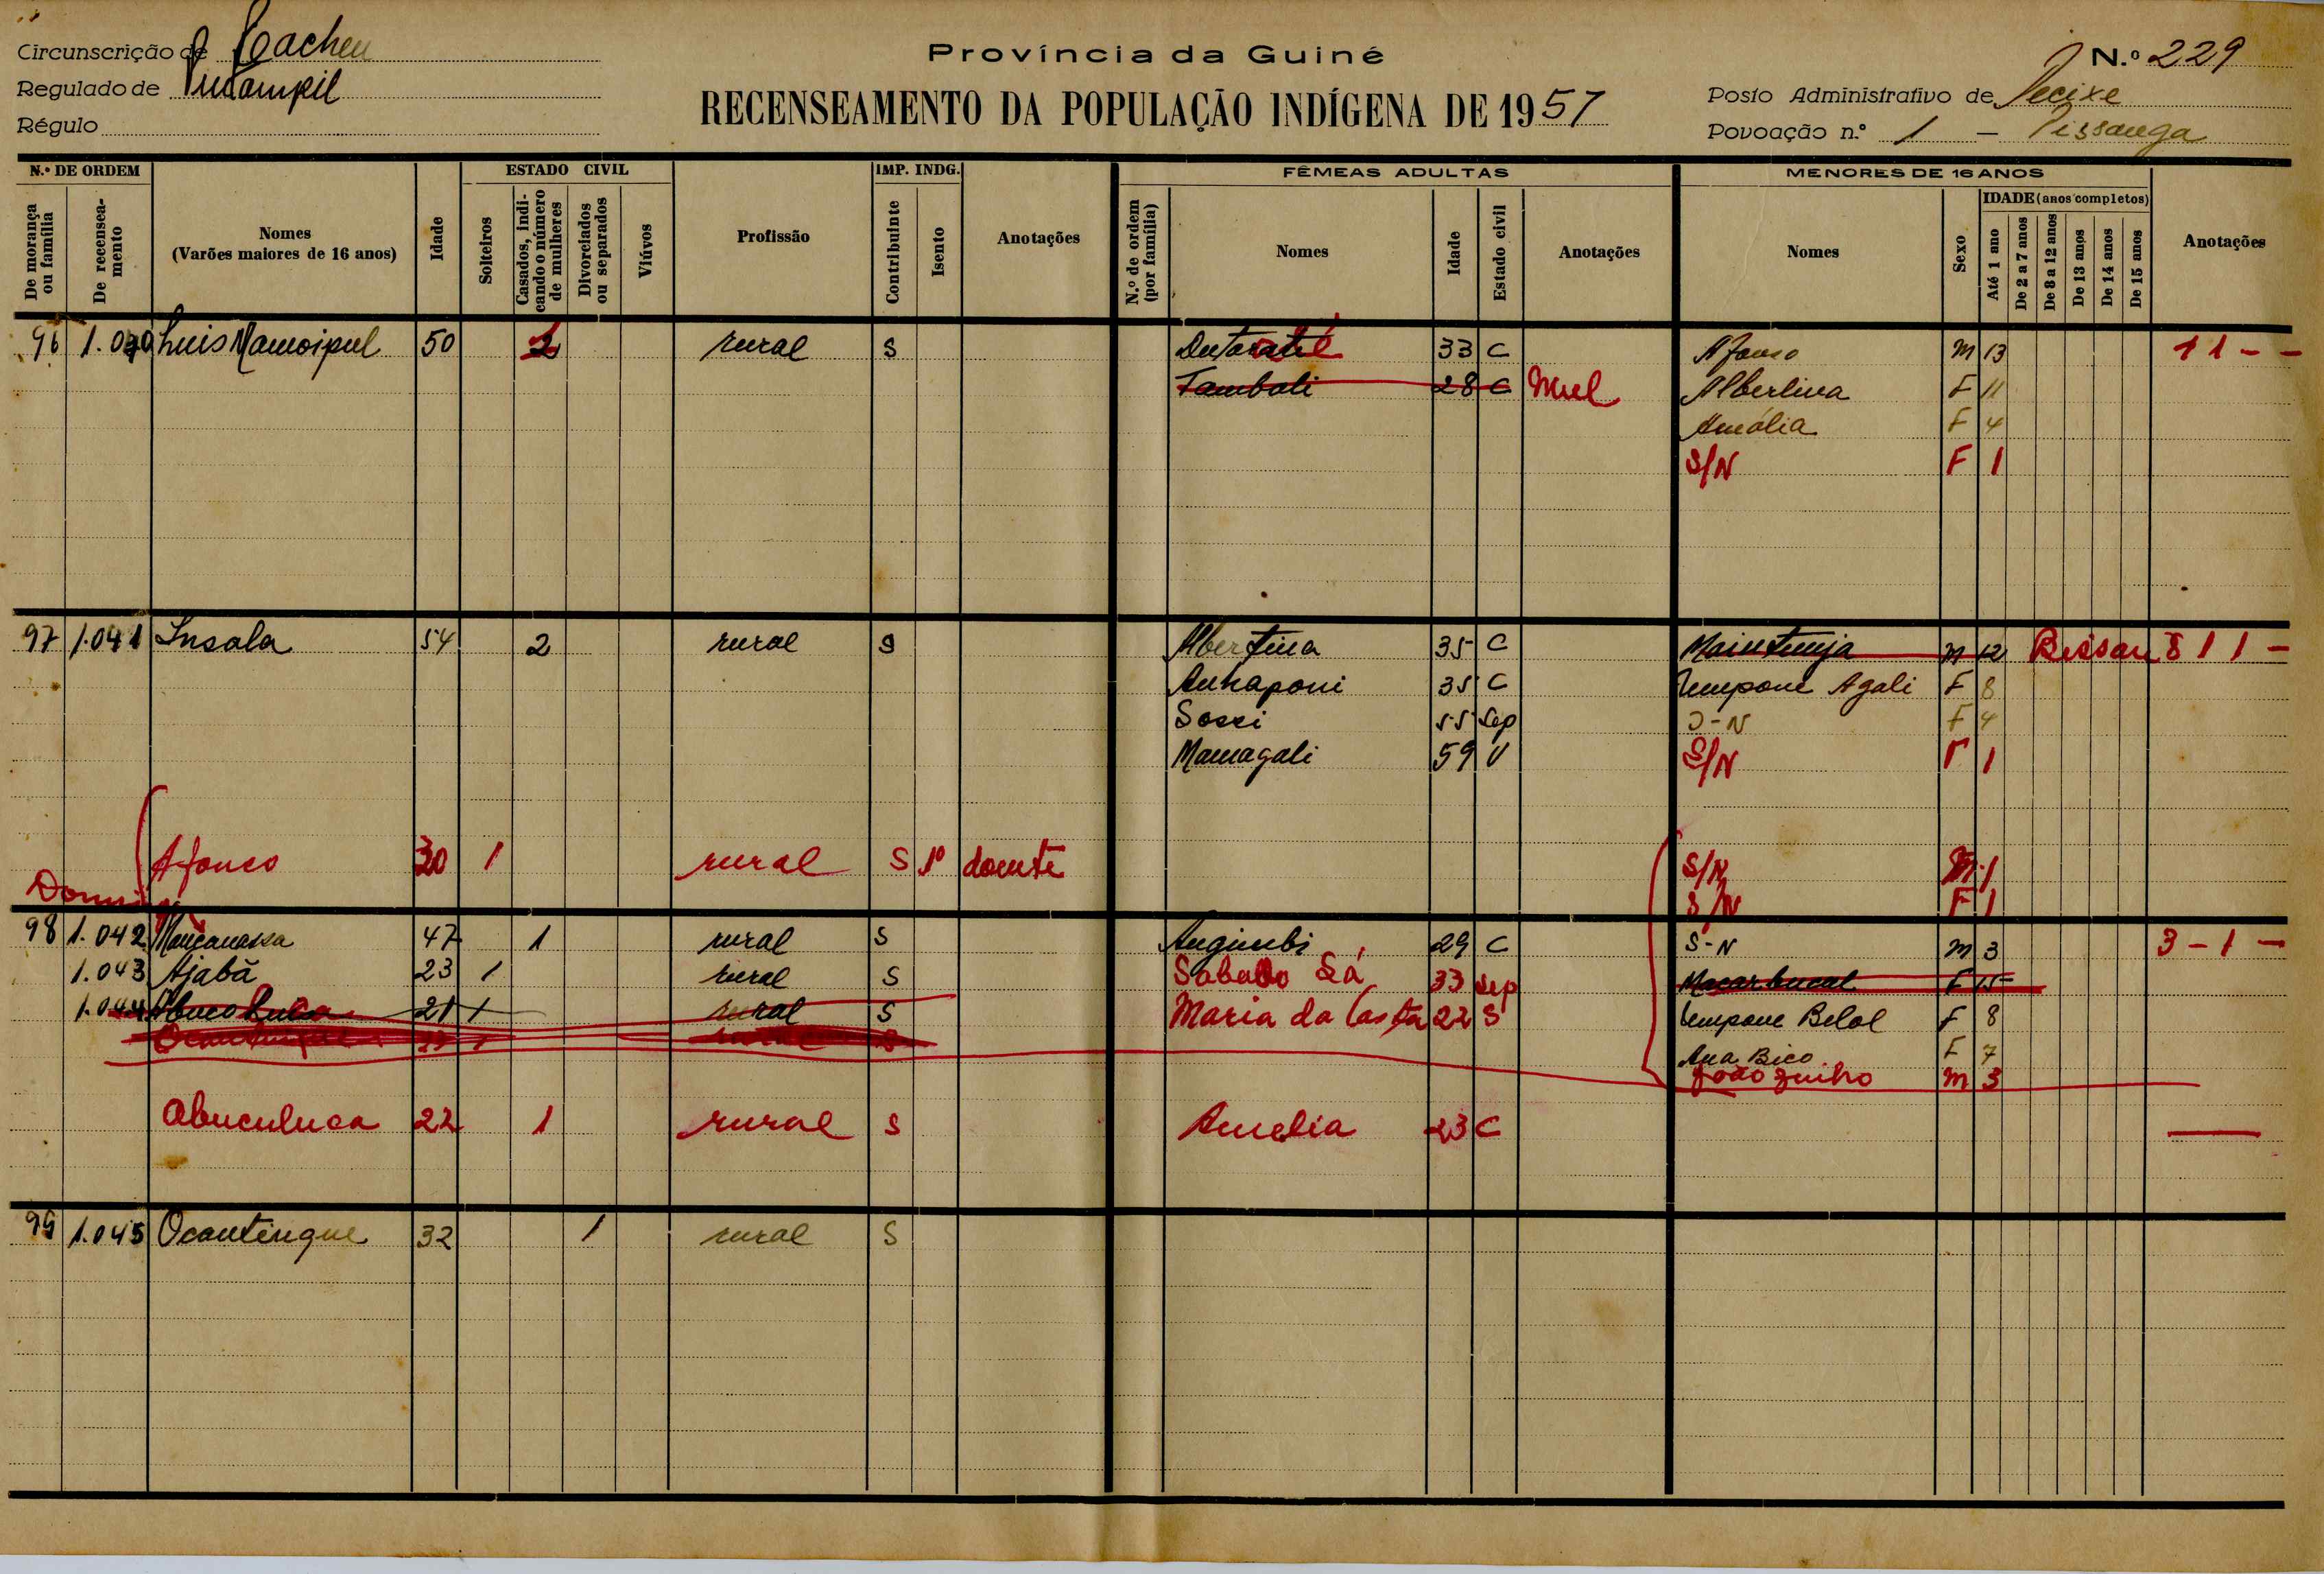 Circunscrição de Cacheu
Regulado de
Régulo
Província da Guiné
RECENSEAMENTO DA POPULAÇÃO INDÍGENA DE 1957
N.º 229
Posto Administrativo de Jecixe
Povoação n.º 1 - Pissanga
N.º DE ORDEM
De morança ou família
De recenseamento
Nomes
(Varões maiores de 16 anos)
Idade
ESTADO CIVIL
Solteiros
Casados, indicando o número de mulheres
Divorciados ou separados
Viúvos
Profissão
IMP. INDG.
Contribuinte
Isento
Anotações
FÊMEAS ADULTAS
N.º de ordem (por família)
Nomes
Idade
Estado civil
Anotações
MENORES DE 16 ANOS
Nomes
Sexo
IDADE (anos completos)
Até 1 ano
De 2 a 7 anos
De 8 a 12 anos
De 13 anos
De 14 anos
De 15 anos
Anotações
96 Luis 50 rural S 33 C Afonso M 13 1 1 - -
Tambali 28 C Mul Albertina F 11
Amália F 4
S/N F 1
97 1.041 Insala 54 2 rural S Albertina 35 C M 12 1 1 -
Anhaponi 35 C Umpone Agali F 8
Sossi 55 Sep S-N F 4
Mamagali 59 V S/N F 1
Afonso 30 1 rural S 1º doente S/N M 1
S/N F 1
98 1.042 Mançanassa 47 1 rural S Angimbi 29 C S-N M 3 3 - 1 -
1.043 Ajabã 23 1 rural S Sabado Sá 33 Sep F 15
1.044 21 1 rural S Maria da Costa 22 S Umpone Belal F 8
Ana Bico F 7
Joãozinho M 3
Abuculuca 22 1 rural S Amelia 23 C
99 1.045 Ocantingue 32 1 rural S